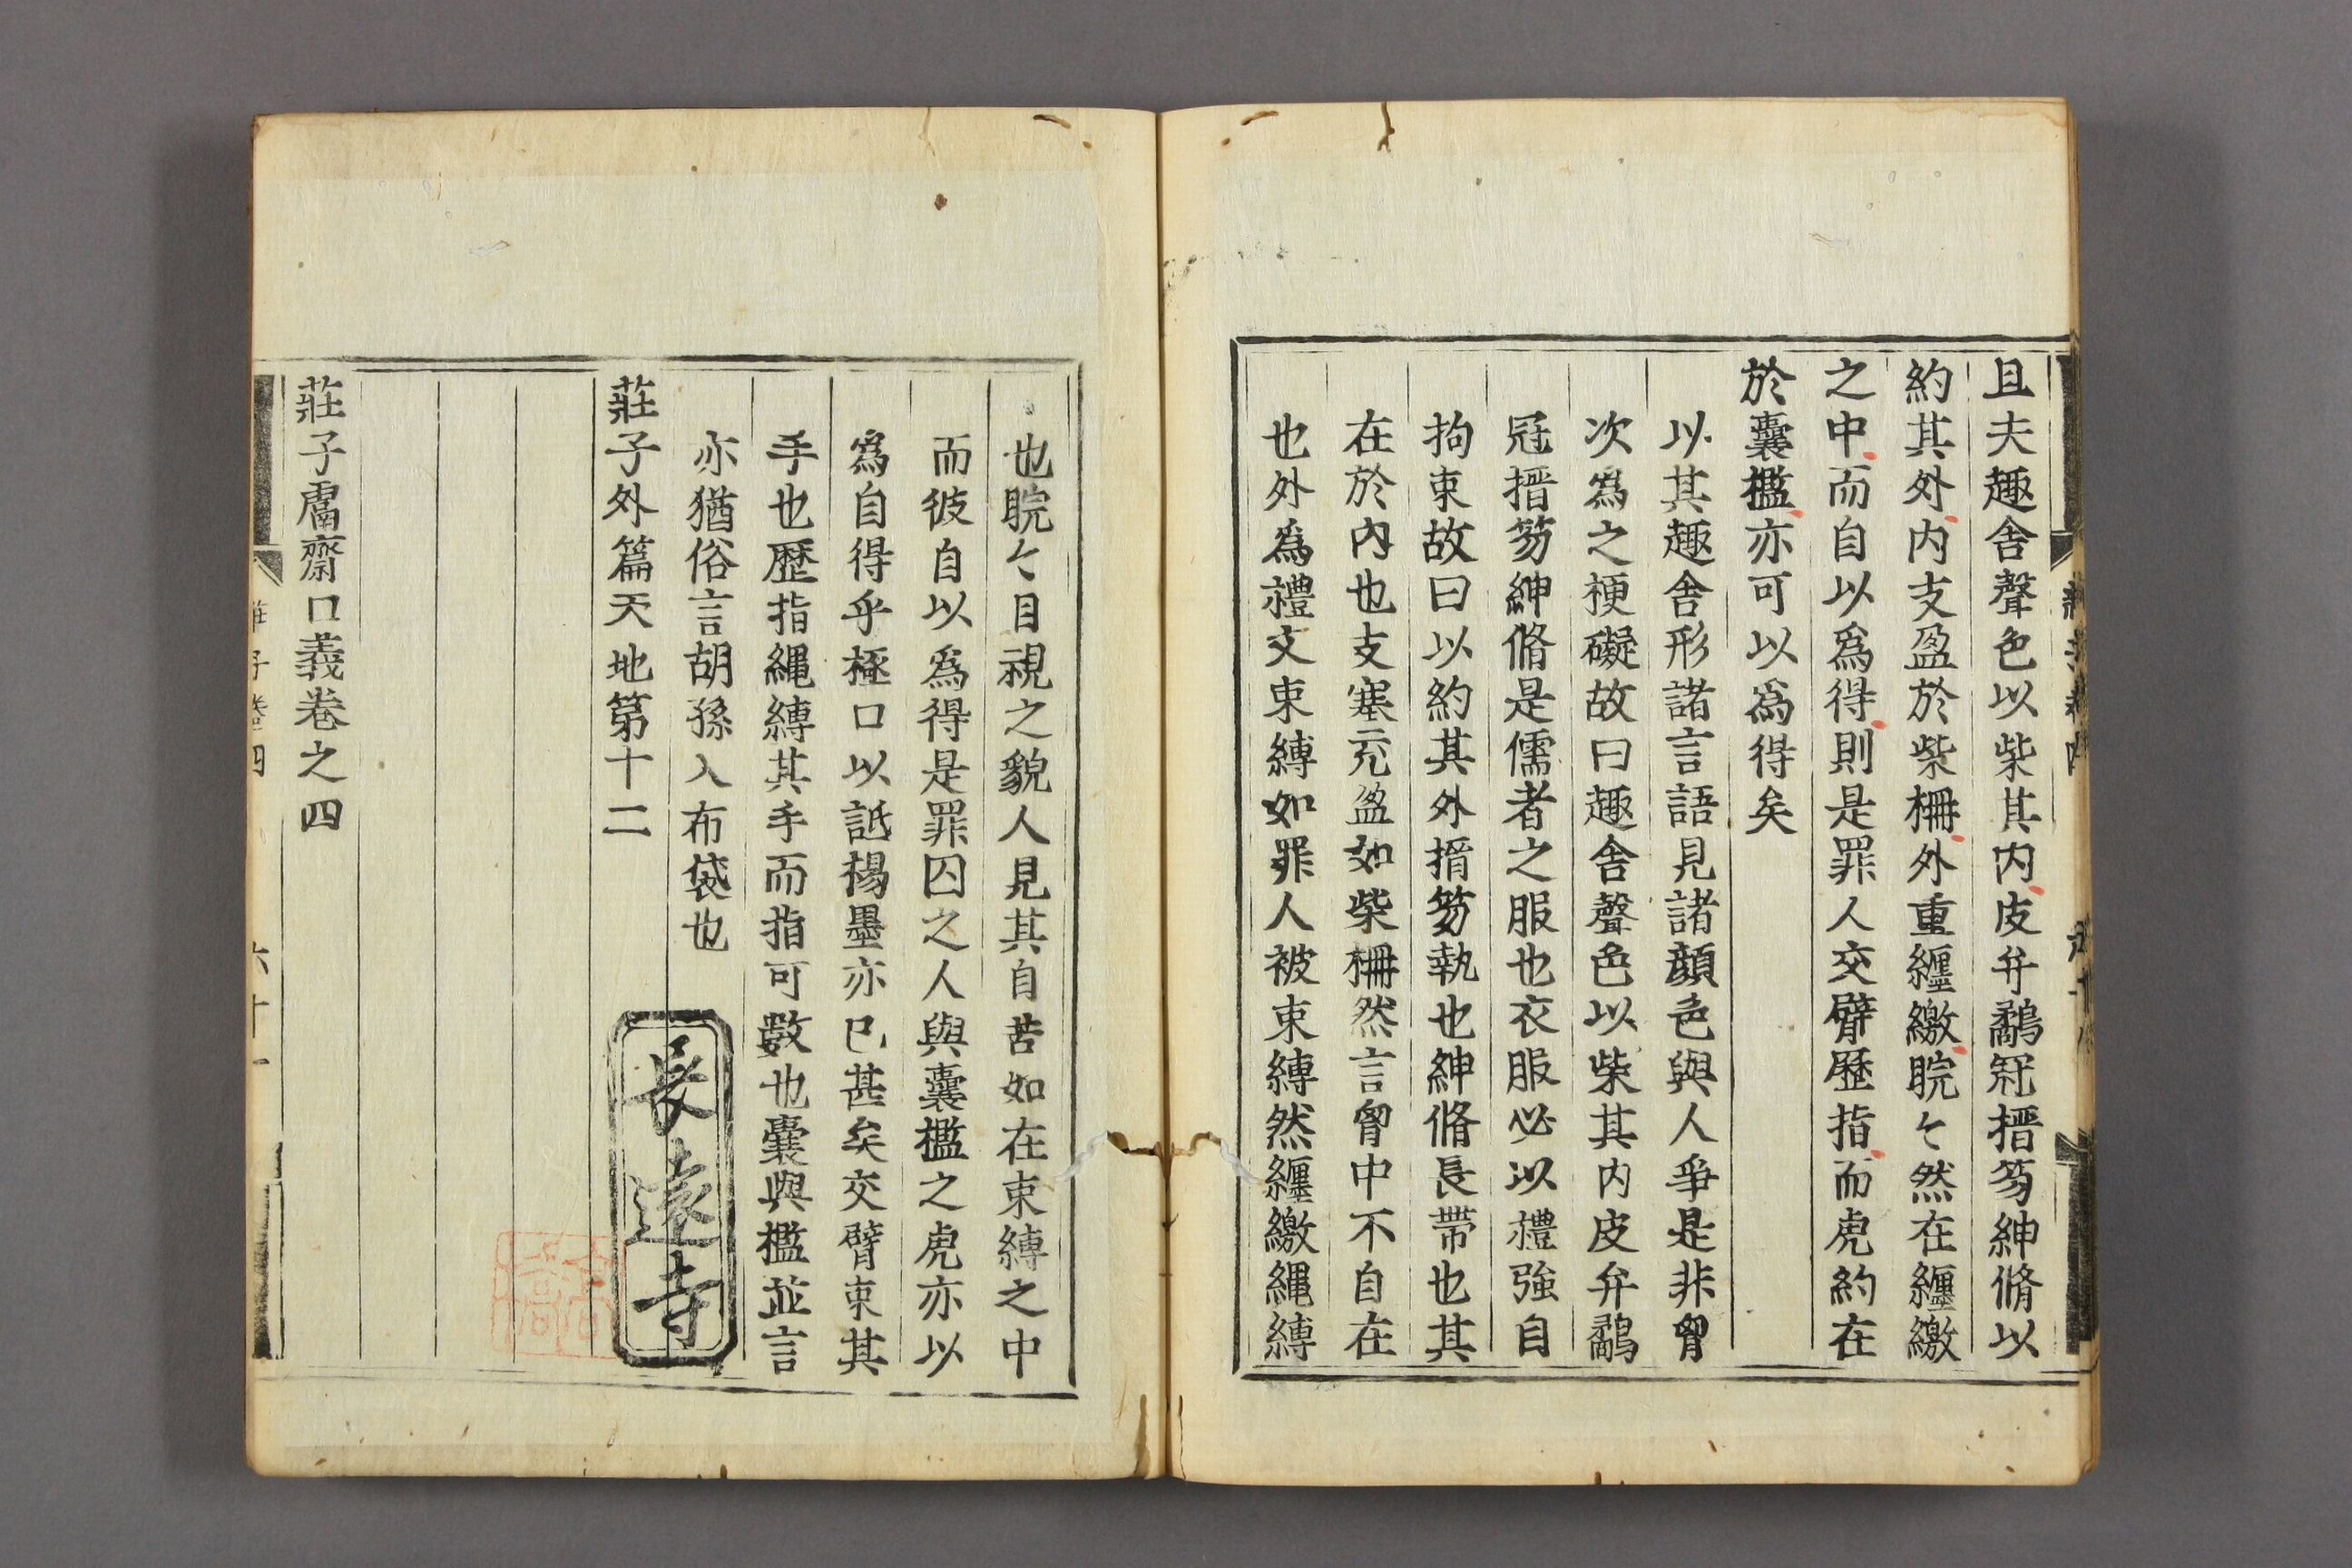 且夫趣舍聲色以柴其内皮弁鷸冠搢笏紳脩以
約其外内支盈於柴柵外重纆繳睆〻然在纆繳
之中而自以爲得則是罪人交臂歷指而虎約在
於囊檻亦可以爲得矣
以其趣舍形諸言語見諸顔色與人爭是非胷
次爲之梗礙故曰趣舍聲色以柴其内皮弁鷸
冠搢笏紳脩是儒者之服也衣服必以禮強自
拘束故曰以約其外搢笏執也紳脩長帶也其
在於內也支塞充盈如柴柵然言胷中不自在
也外爲禮文束縛如罪人被束縛然纆繳繩縛
也睆〻目視之貌人見其自苦如在束縛之中
而彼自以爲得是罪囚之人與囊檻之虎亦以
爲自得乎極口以詆楊墨亦已甚矣交臂束其
手也歷指繩縛其手而指可數也囊與檻並言
亦猶俗言胡孫入布袋也
莊子外篇天地第十二
長遠寺
莊子鬳齋口義卷之四
莊子卷四
六十一